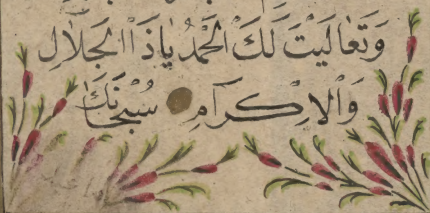 وَتَعَالَيْتَ لَكَ الْحَمْدُ يَاذَا الْجَلَالِ
وَالْاِكْرَامِ سُبْحَانَكَ